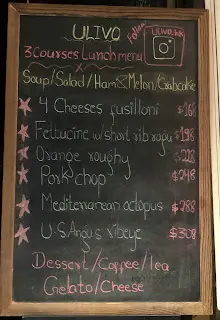 ULIVO
Follow
ULIVO_HK
3 Courses Lunch menu
Soup/Salad/Ham & Melon/Crabcake
4 Cheeses fusilloni $168
Fettucine w/short rib ragu $198
Orange roughy $228
Pork chop $248
Mediterranean octopus $288
U.S Angus ribeye $308
Dessert/Coffee/Tea
Gelato/Cheese